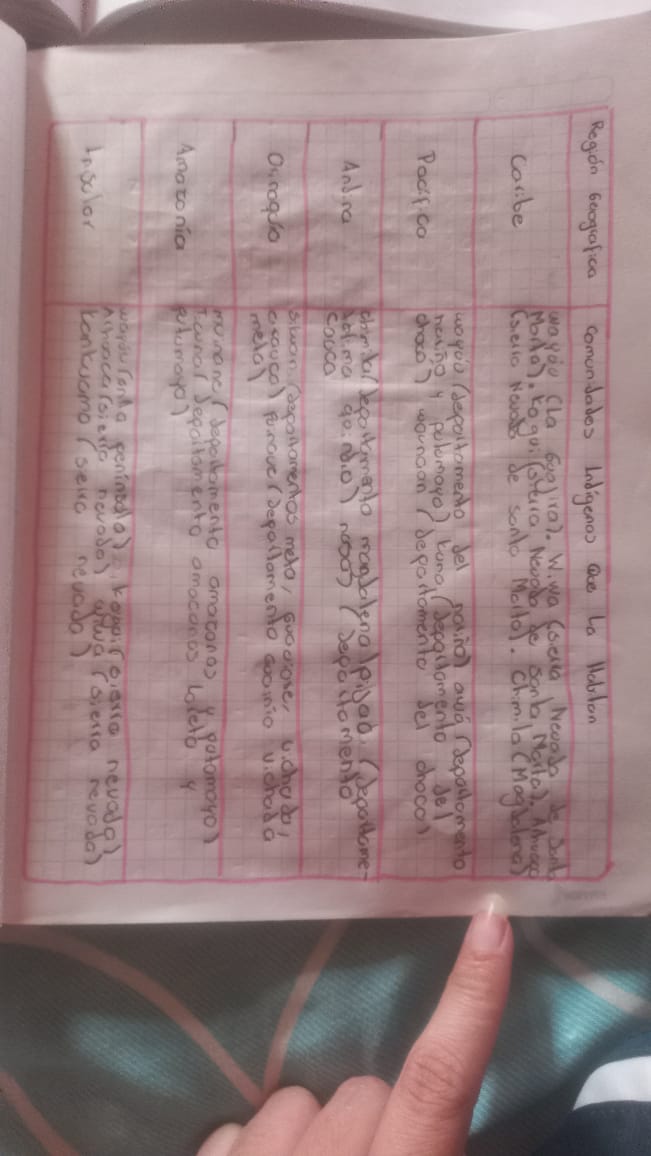 Región Geografica
Comunidades Indígenas que la Habitan
Caribe
wayúu (la Guajira). Wiwa (sierra Nevada de Santa
Marta). Kogui (sierra Nevada de Santa Marta). Arhuaco
(sierra Nevada de Santa Marta). Chimila (Magdalena)
Pacífica
wayúu (departamento del nariño) awá (departamento
nariño y putumayo) kuna (departamento del
choco) waunaan (departamento del choco)
Andina
chimila (departamento magdalena) pijao (departame-
tolima quindio) nasa) (departamento
Cauca
Orinoquia
sikuani (departamentos meta, guaviare, vichada,
arauca) Puinave (departamento guainia vichada
meta)
Amazonía
muinane (departamento amazonas y putumayo)
Ticuna (departamento amazonas loreto y
putumayo)
Insular
wayúu (península), kogui (sierra nevada)
Arhuaco (sierra nevada) wiwa (sierra nevada)
kankuamo (serra nevada)